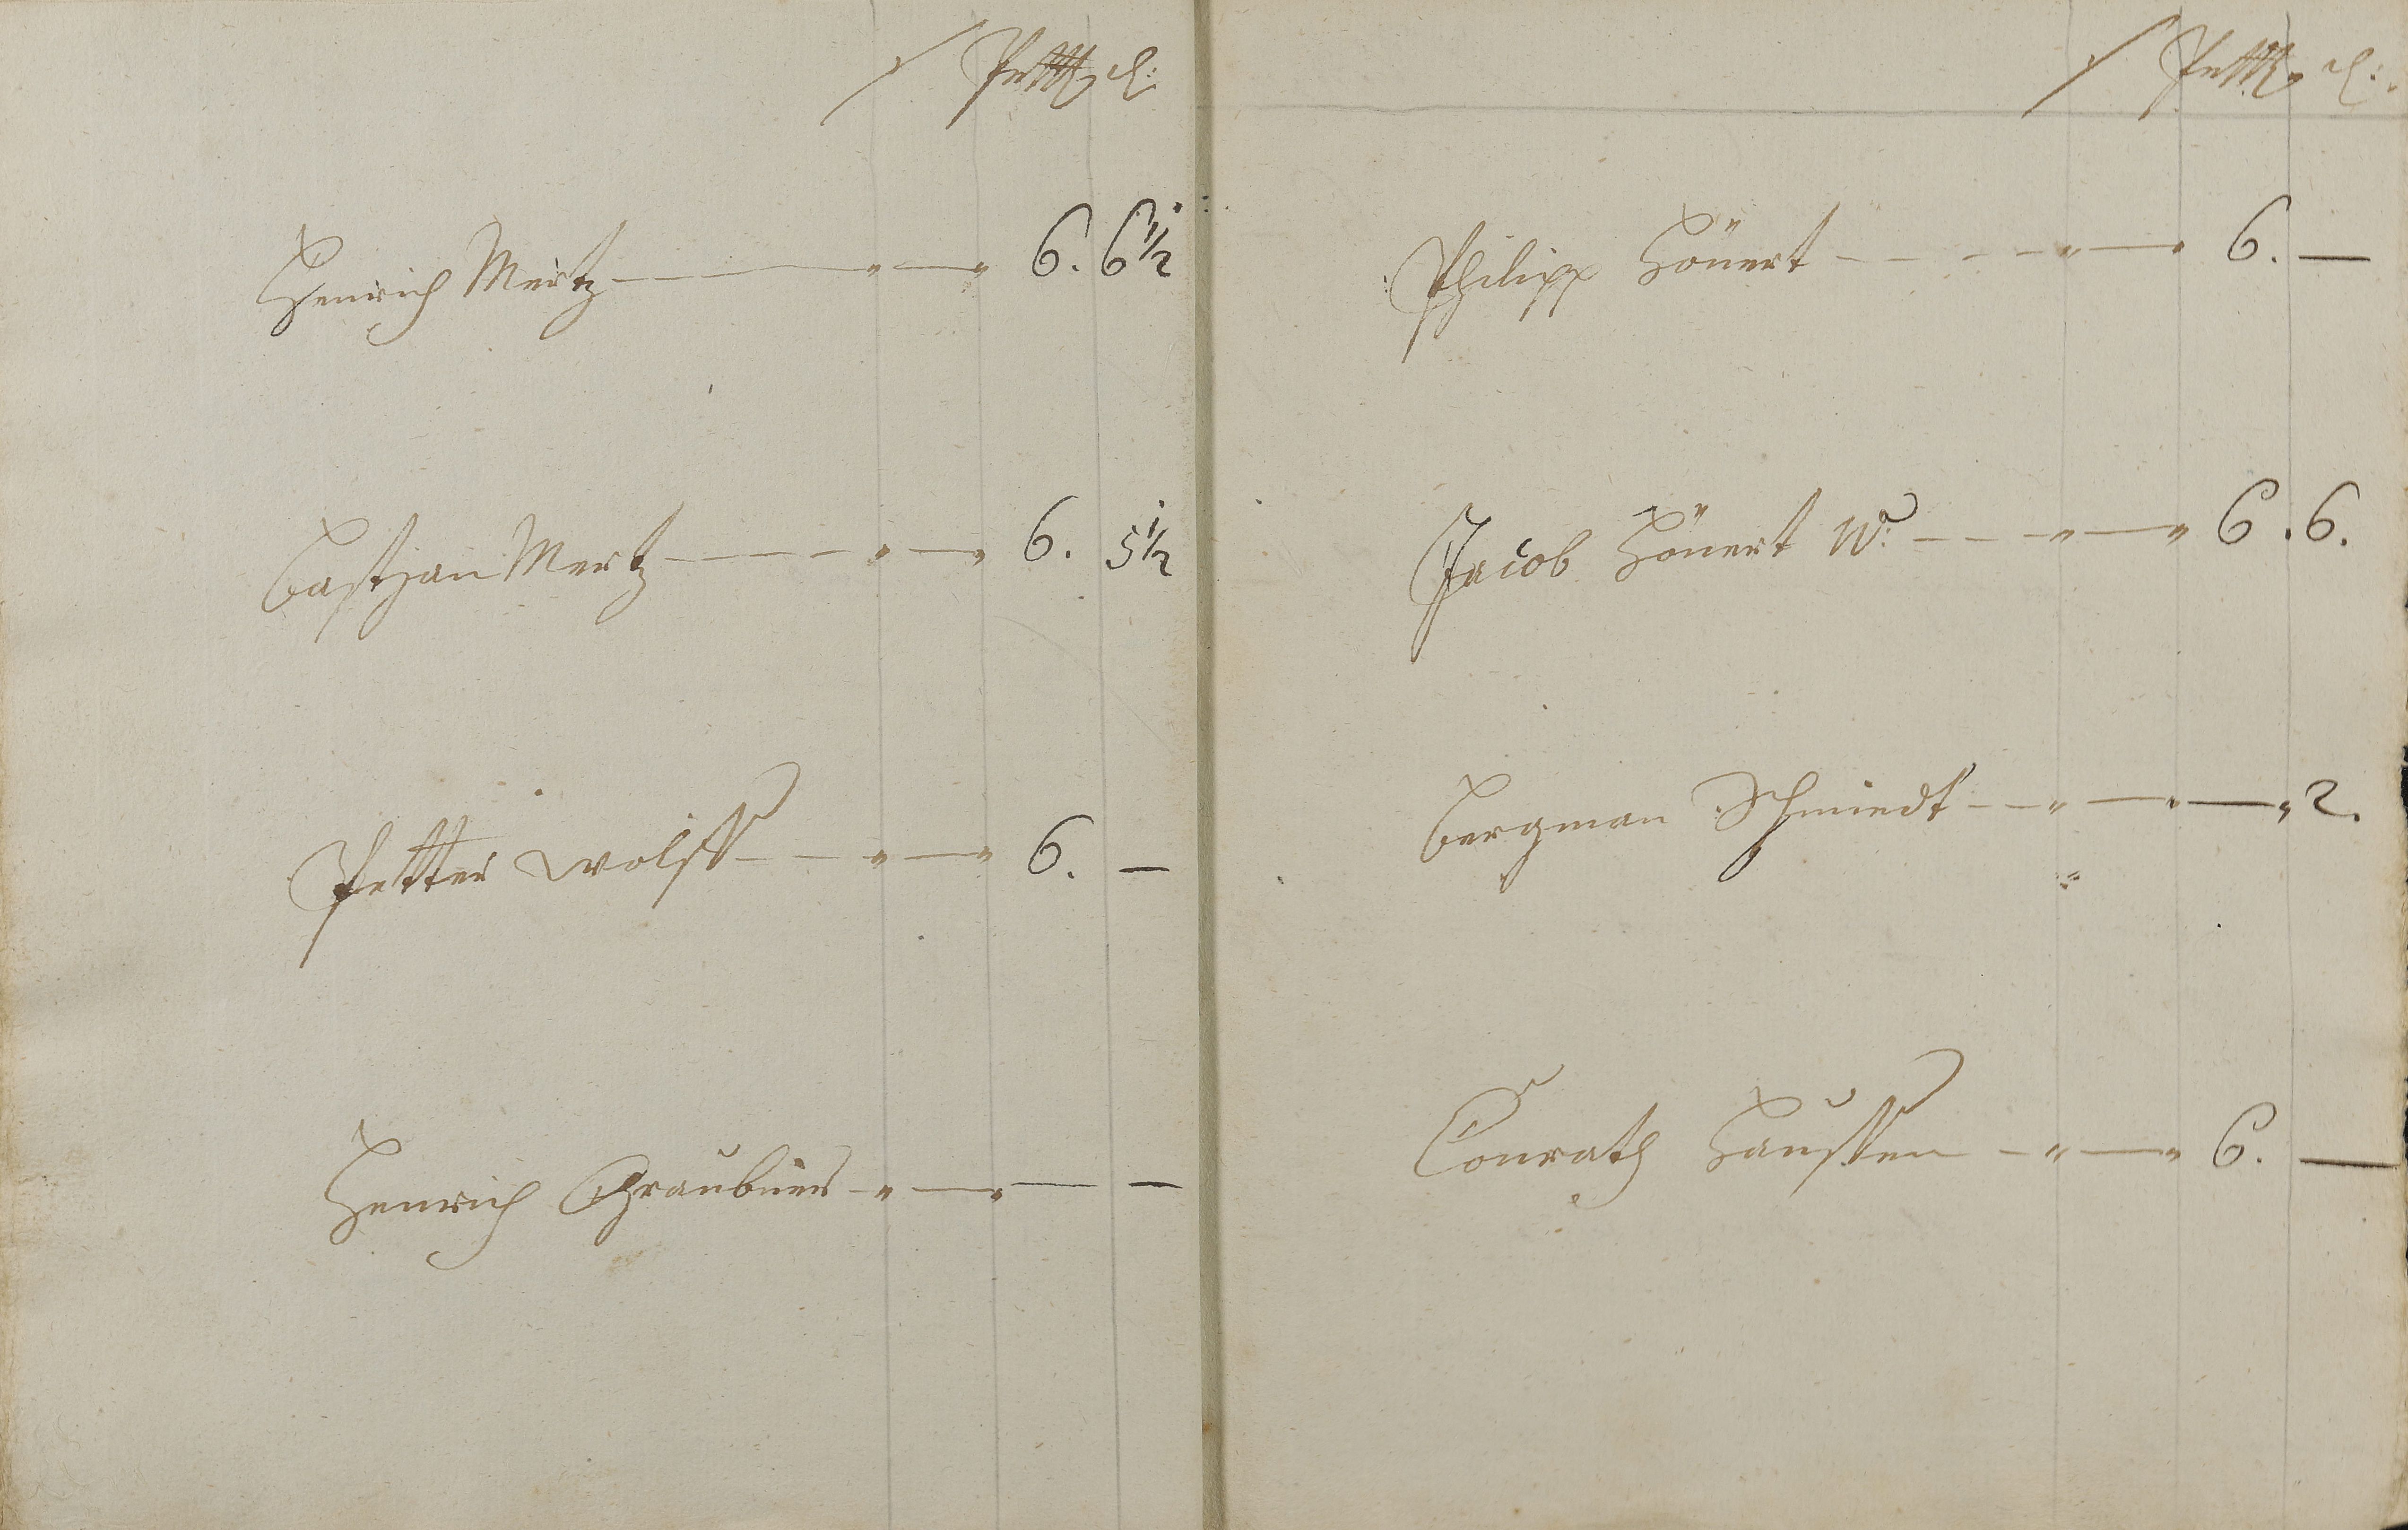 Henrich Mertz — " — " 6. 6 1/2
Bastian Mertz — " — " 6. 5 1/2
Petter Wolff — " — " 6. —
Henrich Graubner — " — " — —
Philipp Hönert — " — " 6. —
Jacob Hönert W: — " — " 6. 6.
Bergman Schmiedt — " — " — " 2.
Conrath Hausten — " — " 6. —